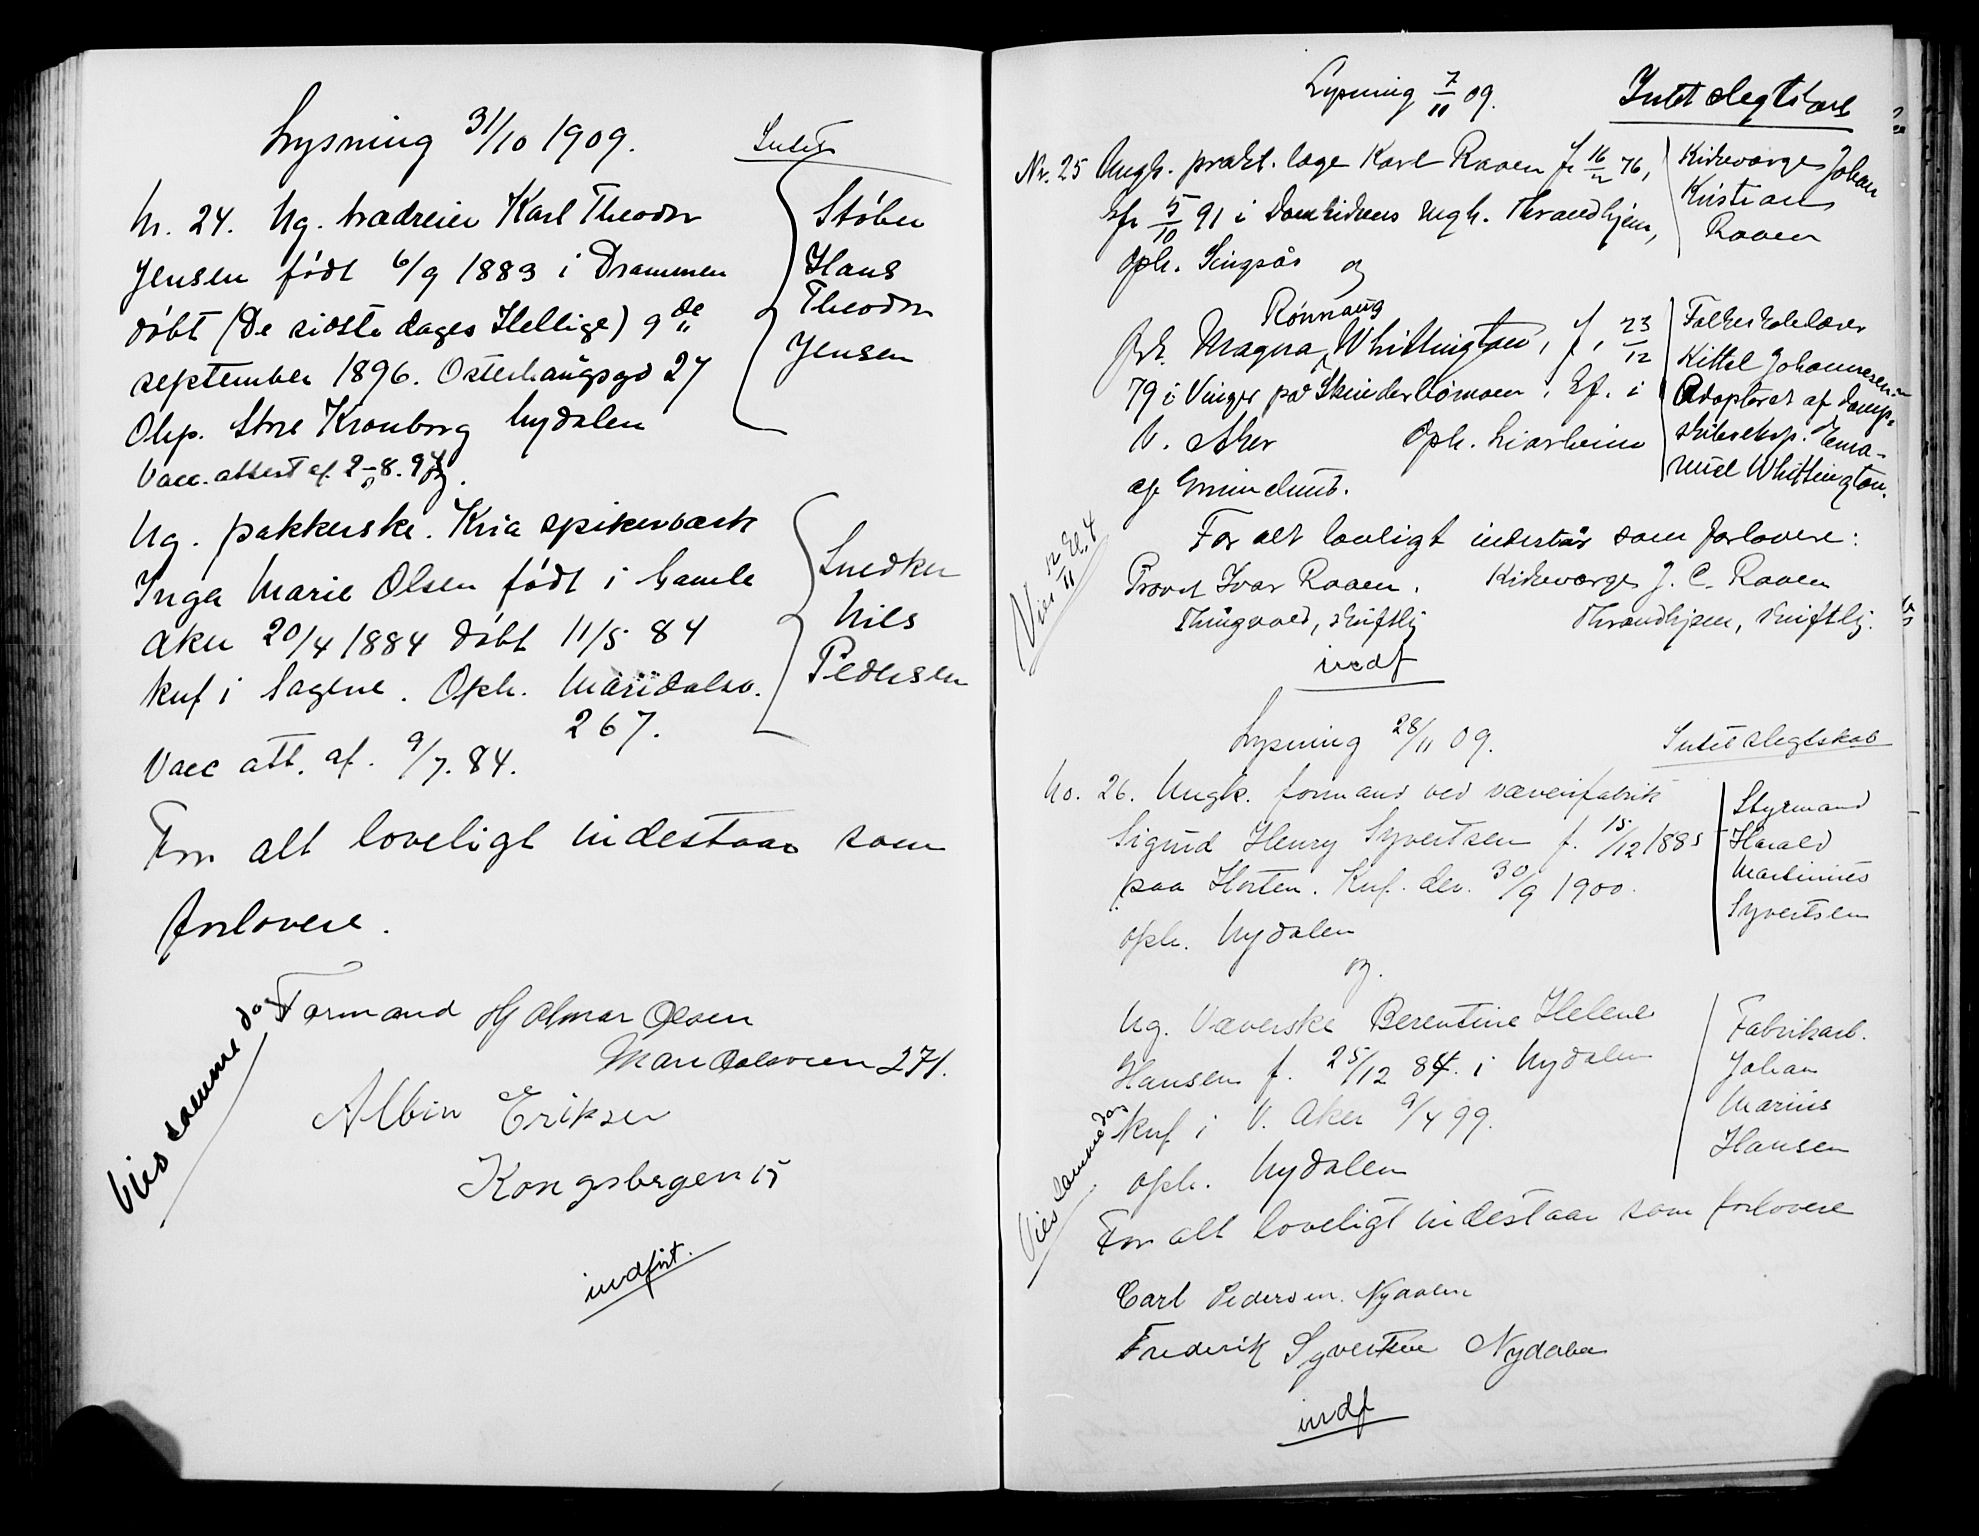 Lysning 31/10 1909.
Intet
Nr. 24. Ug. trædreier Karl Theodor
Jensen født 6/9 1883 i Drammen
døbt (De sidste dages Hellige) 9de
september 1896. Osterhaugsgd 27
Oph. Store Kronborg Nydalen
Vacc. attest af 2-8.97
Støber
Hans
Theodor
Jensen
og.
Ug. pakkerske. Kria spikerværk
Inga Marie Olsen født i Gamle
Aker 20/4 1884 døbt 11/5 84
knf i Sagene. Oph. Maridalsv.
267.
Vacc att. af. 9/7. 84.
Snedker
Nils
Pedersen
For alt loveligt indestaar som
forlovere.
Formand Hjalmar Olsen
Maridalsveien 271.
Albin Eriksen
Kongsbergen 15
Vies samme dag
indført.
Lysning 7/11 09.
Intet slegtskab
Nr. 25 Ungk. prakt. læge Karl Raaen f. 16/12 76,
kfr 5/10 91 i Domkirkens mgh. Thrandhjem,
Oph. Singsås og
Kirkeværge Johan
Kristian
Raaen
Rønnaug
Magna Whittington, f. 23/12
79 i Vinger på Skinderbømoen. Kf. i
V. Aker Oph. Liarheim
af Grimelund.
Folkeskolelærer
Kittel Johannesen
Adopteret af damp-
skibseksp. Ema-
nuel Whittington.
For alt lovligt indestår som forlovere:
Provst Ivar Raaen. Kirkeværge J. C. Raaen
Thingvold, skriftlig Thrandhjem, skriftlig.
Vies 12/11 kl. 4
indf
Lysning 28/11 09.
Intet slegtskab
No. 26. Ungk. formand ved væverifabrik
Sigurd Henry Syvertsen f. 15/12 1885
paa Horten. Knf. der. 30/9 1900.
oph. Nydalen
og.
Styrmand
Harald
Martinius
Syvertsen
Ug. Væverske Berentine Helene
Hansen f. 25/12 84. i Nydalen
knf i V. Aker 9/4 99.
oph. Nydalen
Fabrikarb.
Johan
Marius
Hansen
Vies samme dag
For alt loveligt indestaar som forlovere
Carl Pedersen. Nydalen
Frederik Syvertsen Nydalen
indf